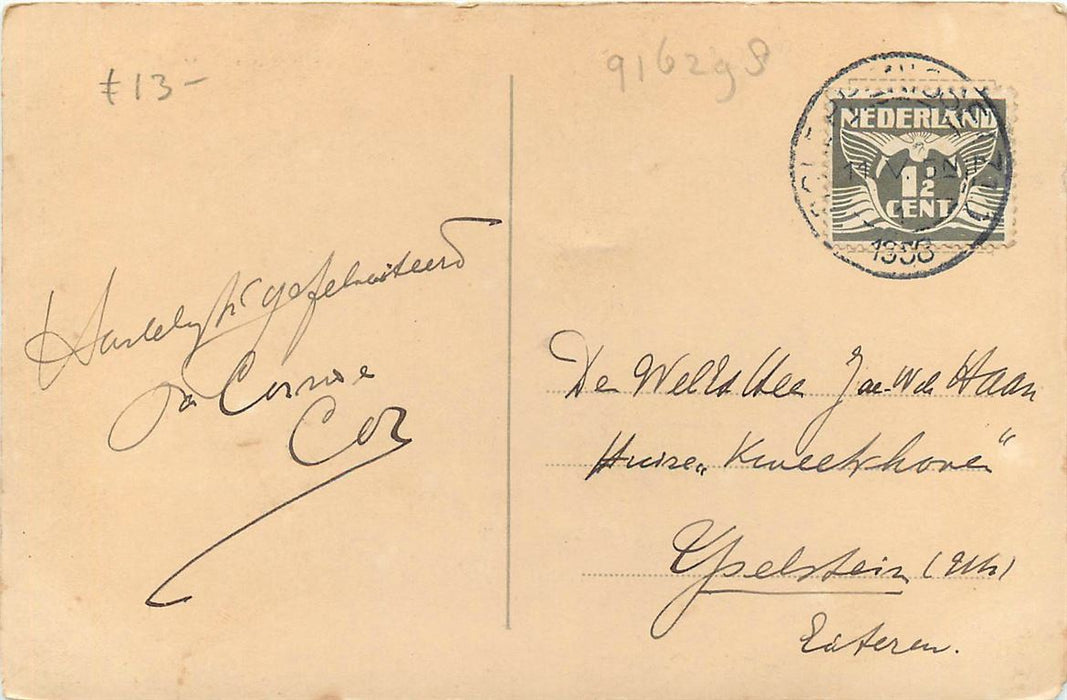 13-
91629S
NEDERLAND
1½
CENT
1938
Hartelijk gefeliciteerd
Corrie
Cor
De WelEd Heer J de Haan
Huize „Kweekhoven"
Yselstein (Utr)
Eiteren.